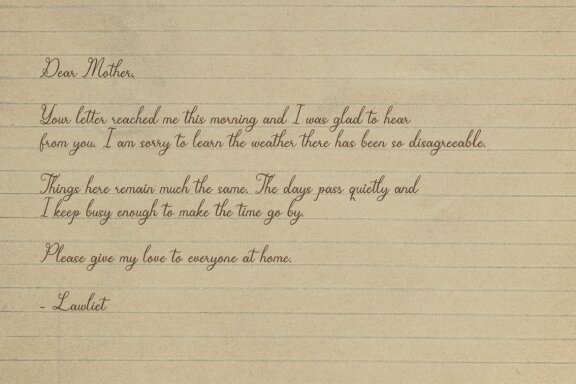 Dear Mother,
Your letter reached me this morning and I was glad to hear
from you. I am sorry to learn the weather there has been so disagreeable.
Things here remain much the same. The days pass quietly and
I keep busy enough to make the time go by.
Please give my love to everyone at home.
- Lawliet